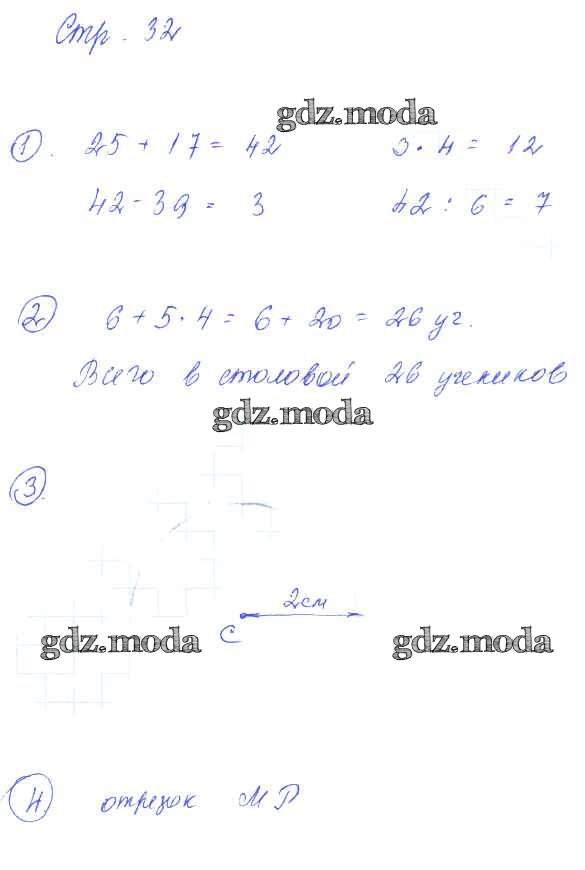 Стр. 32
gdz.moda
1. 25 + 17 = 42 3 · 4 = 12
42 - 39 = 3 42 : 6 = 7
2 6 + 5 · 4 = 6 + 20 = 26 уч.
Всего в столовой 26 учеников
gdz.moda
3.
2см
C
gdz.moda gdz.moda
4. отрезок МР